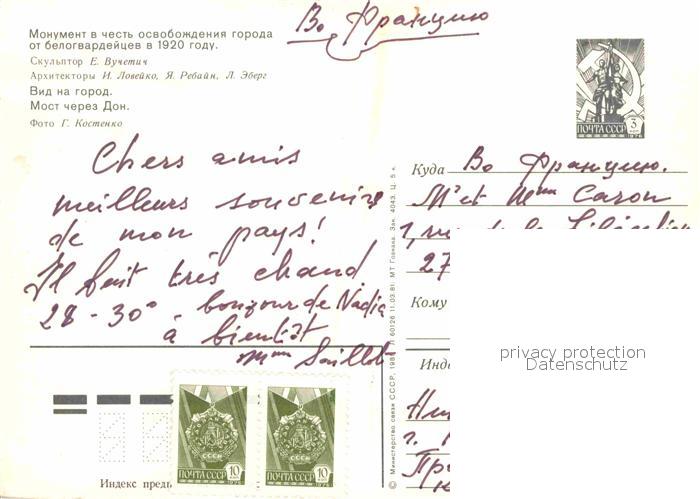 Во Францию
Монумент в честь освобождения города
от белогвардейцев в 1920 году.
Скульптор Е. Вучетич
Архитекторы И. Ловейко, Я. Ребайн, Л. Эберг
Вид на город.
Мост через Дон.
Фото Г. Костенко
Chers amis
meilleurs souvenirs
de mon pays!
Il fait très chaud
28 - 30° - bonjour de Nadia
à bientôt
ПОЧТА СССР 3 коп
1976
Куда Во Францию.
Mr et Mme Caron
1, rue de la Libération
27
Кому
Инде
г.
privacy protection
Datenschutz
© Министерство связи СССР, 198 60126 11.03.81. МТ Гознака. Зак. 4043. Ц. 5 к.
ПОЧТА СССР 10
ПОЧТА СССР 10
Индекс предп